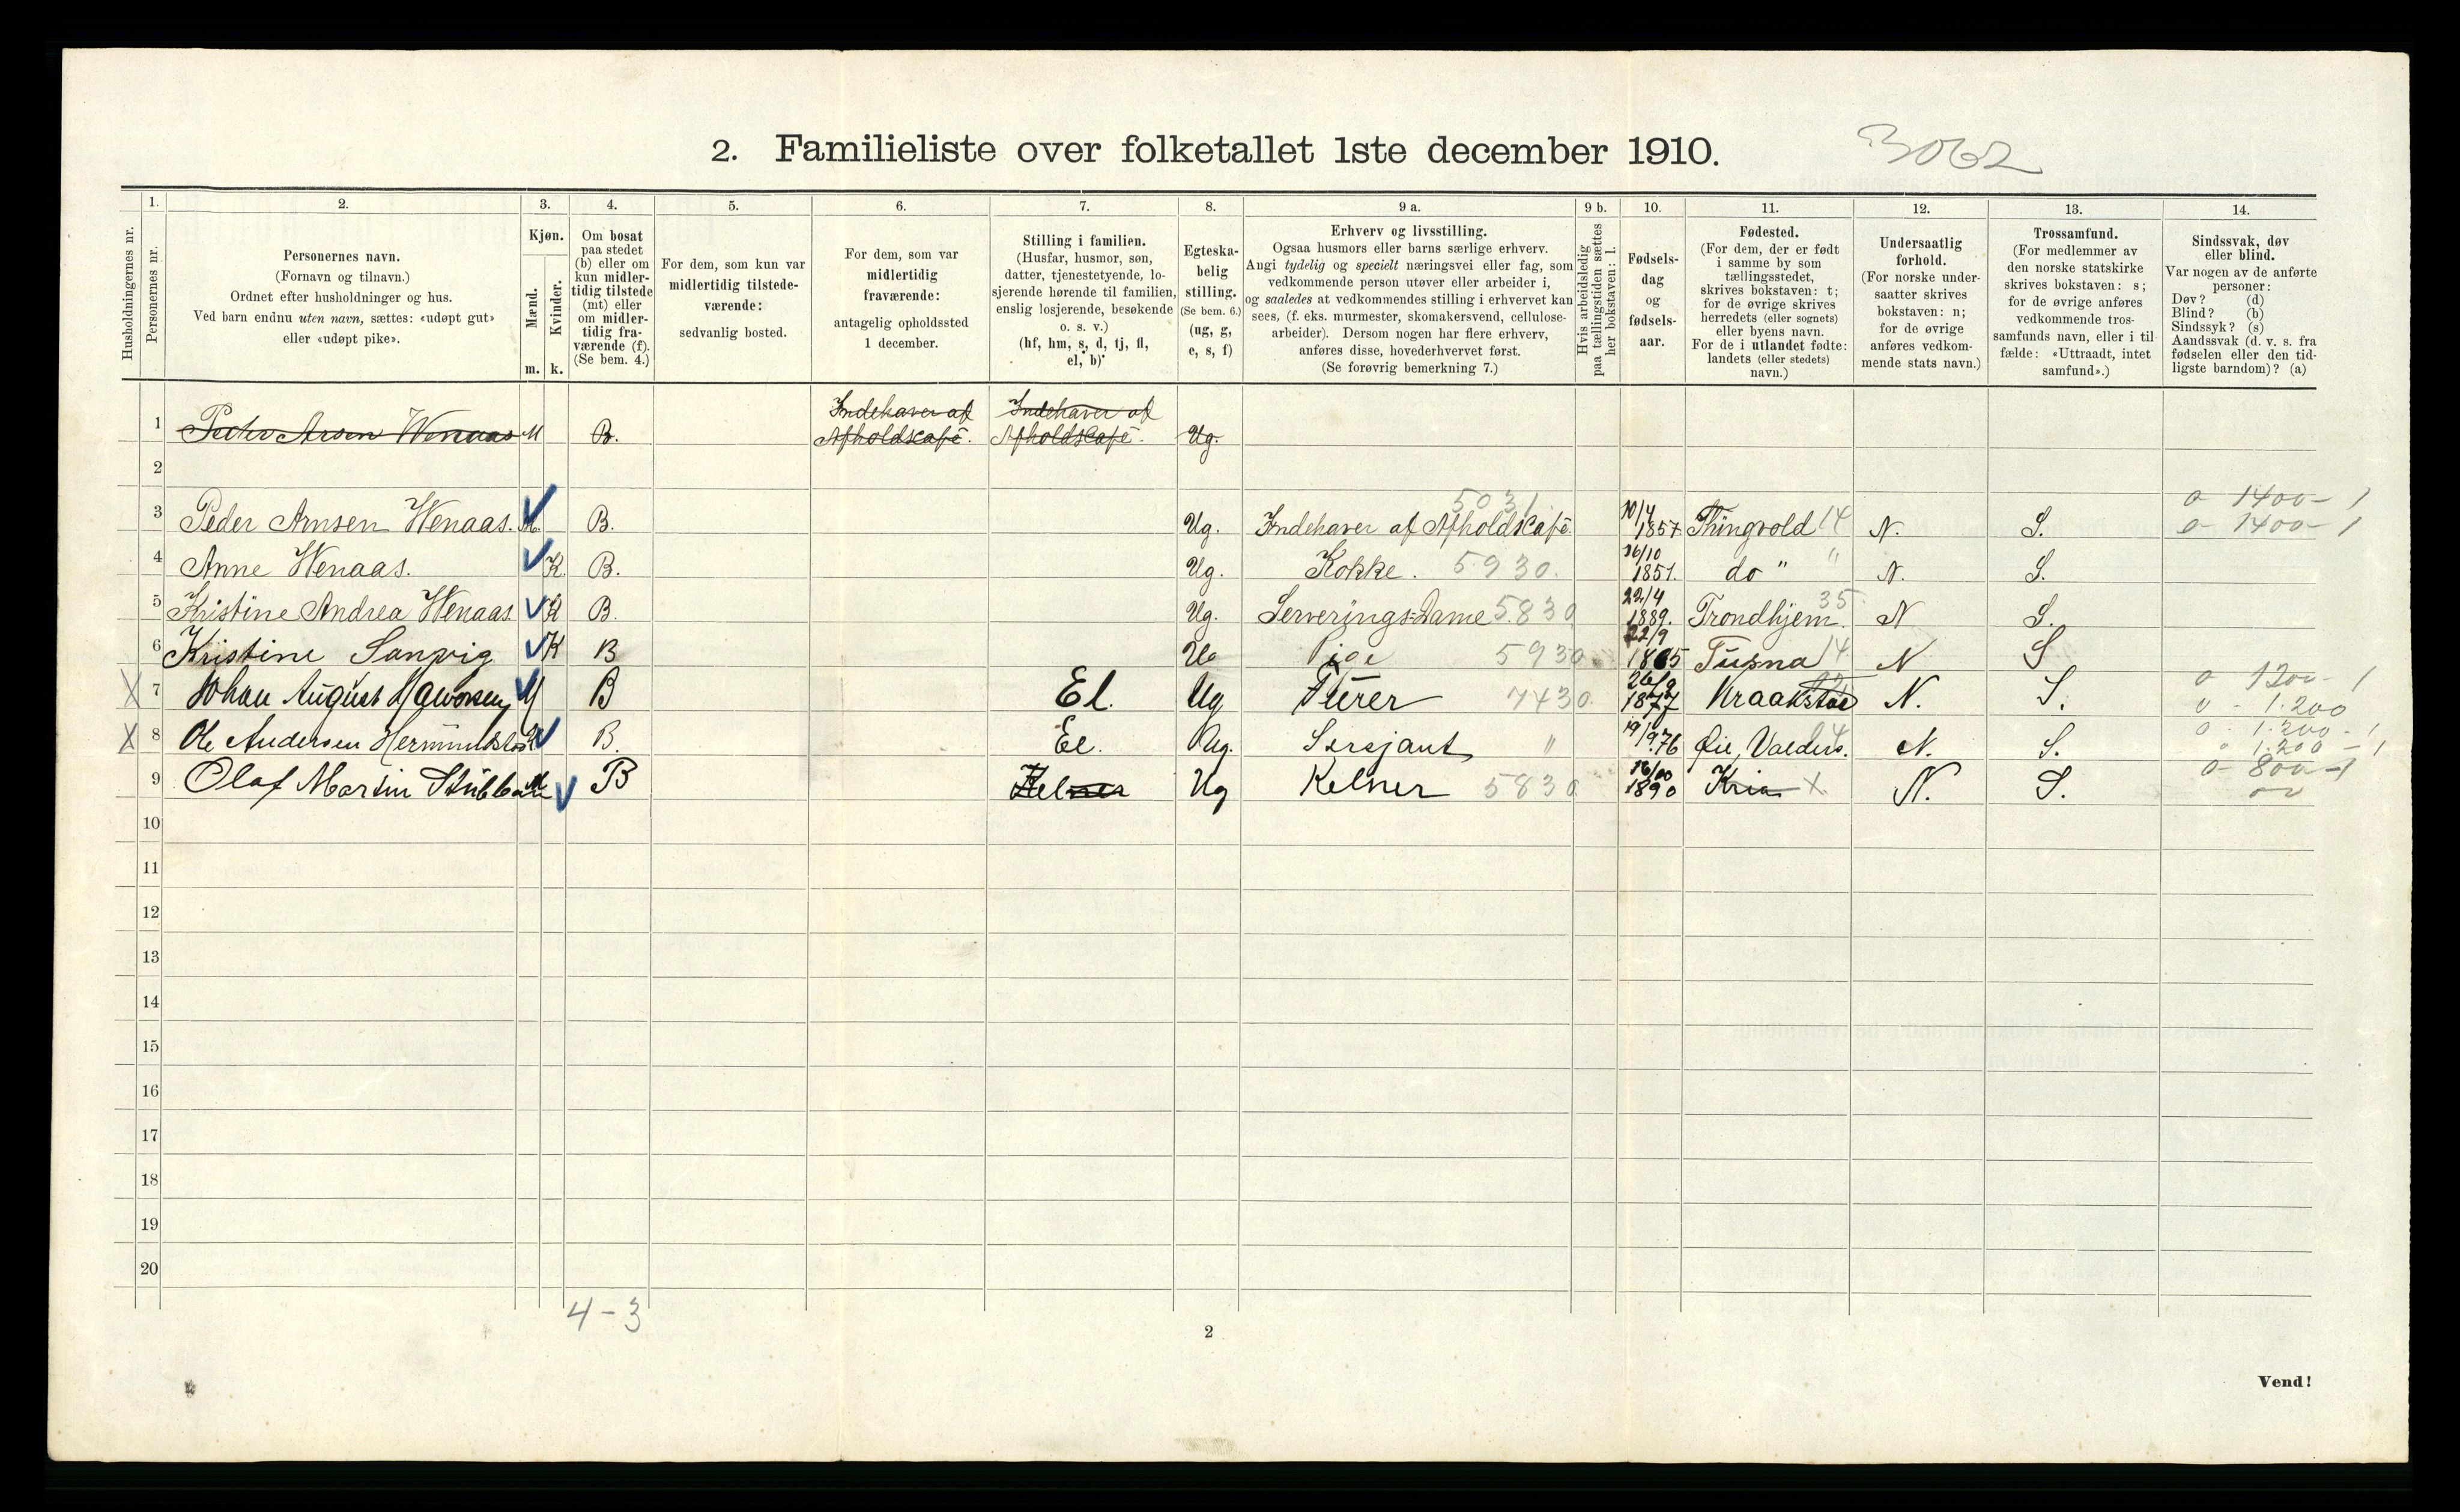 2. Familieliste over folketallet 1ste december 1910.
3062
Husholdningernes nr.
1.
Personernes nr.
2.
Personernes navn.
(Fornavn og tilnavn.)
Ordnet efter husholdninger og hus.
Ved barn endnu uten navn, sættes: «udøpt gut»
eller «udøpt pike».
3.
Kjøn.
Mænd.
Kvinder.
m. k.
4.
Om bosat
paa stedet
(b) eller om
kun midler-
tidig tilstede
(mt) eller
om midler-
tidig fra-
værende (f).
(Se bem. 4.)
5.
For dem, som kun var
midlertidig tilstede-
værende:
sedvanlig bosted.
6.
For dem, som var
midlertidig
fraværende:
antagelig opholdssted
1 december.
7.
Stilling i familien.
(Husfar, husmor, søn,
datter, tjenestetyende, lo-
sjerende hørende til familien,
enslig losjerende, besøkende
o. s. v.)
(hf, hm, s, d, tj, fl,
el, b)
8.
Egteska-
belig
stilling.
(Se bem. 6.)
(ug, g,
e, s, f)
9 a.
Erhverv og livsstilling.
Ogsaa husmors eller barns særlige erhverv.
Angi tydelig og specielt næringsvei eller fag, som
vedkommende person utøver eller arbeider i,
og saaledes at vedkommendes stilling i erhvervet kan
sees, (f. eks. murmester, skomakersvend, cellulose-
arbeider). Dersom nogen har flere erhverv,
anføres disse, hovederhvervet først.
(Se forøvrig bemerkning 7.)
9 b.
Hvis arbeidsledig
paa tællingstiden sættes
her bokstaven: l.
10.
Fødsels-
dag
og
fødsels-
aar.
11.
Fødested.
(For dem, der er født
i samme by som
tællingsstedet,
skrives bokstaven: t;
for de øvrige skrives
herredets (eller sognets)
eller byens navn.
For de i utlandet fødte:
landets (eller stedets)
navn.)
12.
Undersaatlig
forhold.
(For norske under-
saatter skrives
bokstaven: n;
for de øvrige
anføres vedkom-
mende stats navn.)
13.
Trossamfund.
(For medlemmer av
den norske statskirke
skrives bokstaven: s;
for de øvrige anføres
vedkommende tros-
samfunds navn, eller i til-
fælde: «Uttraadt, intet
samfund».)
14.
Sindssvak, døv
eller blind.
Var nogen av de anførte
personer:
Døv? (d)
Blind? (b)
Sindssyk? (s)
Aandssvak (d. v. s. fra
fødselen eller den tid-
ligste barndom)? (a)
1 Peder Arsen Wenaas M B. Indehaver af Afholdscafè. Indehaver af Afholdscafè. Ug.
2
3 Peder Arnsen Wenaas. M. B. Ug. Indehaver af Afholdscafè. 5031 10/4 1857. Thingvold 14 N. S. 0 1400 - 1
0 - 1400 - 1
4 Anne Wenaas. K. B. Ug. Kokke. 5930. 16/10 1851. do " " N. S.
5 Kristine Andrea Wenaas. K B. Ug. Serverings=Dame 5830 22/4 1889. Trondhjem. 35 N S.
6 Kristine Sanvig K B Ug Pige 5930 22/9 1885 Tusna 14 N S
X 7 Johan August M B El. Ug Furer 7430 26/9 1877 Kraakstad N. S. 0 1200 - 1
0 - 1.200
X 8 Ole Andersen B. El. Ug. Sersjant " 19/9 76 Øie, Valders. N. S. 0 - 1.200 - 1
" 1.200 - 1
9 Olaf Martin M B Kelner Ug Kelner 5830 16/10 1890 Kria X N. S. 0 - 800 - 1
10
11
12
13
14
15
16
17
18
19
20
4 - 3
2
Vend!